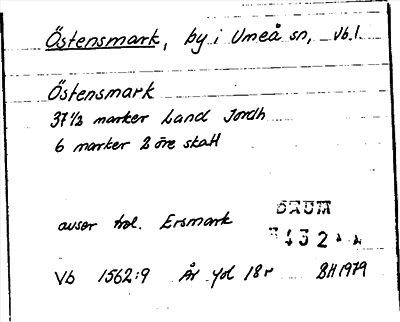 Östensmark, by i Umeå sn, Vb.l.
Östensmark
37 1/2 marker Land Jordh
6 marker 2 öre skatt
avser trol. Ersmark
DAUM
432
Vb 1562:9 År fol 18r BH 1979